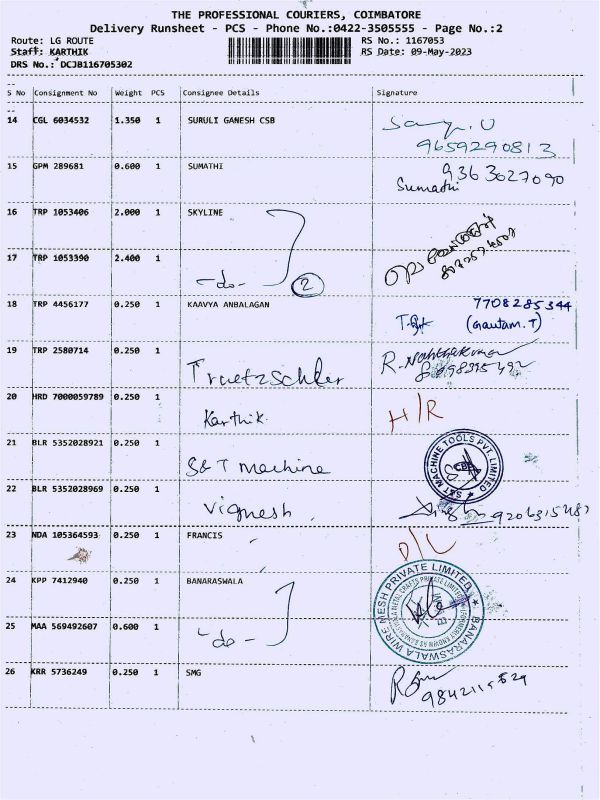 THE PROFESSIONAL COURIERS, COIMBATORE
Delivery Runsheet - PCS - Phone No.:0422-3505555 - Page No.:2
Route: LG ROUTE RS No.: 1167053
Staff: KARTHIK RS Date: 09-May-2023
DRS No.: DCJB116705302
S No Consignment No Weight PCS Consignee Details Signature
14 CGL 6034532 1.350 1 SURULI GANESH CSB
9659290813
15 GPM 289681 0.600 1 SUMATHI 9363027090
Sumathi
16 TRP 1053406 2.000 1 SKYLINE
17 TRP 1053390 2.400 1 -do- 2
18 TRP 4456177 0.250 1 KAAVYA ANBALAGAN 7708285344
(Gautam.T)
19 TRP 2580714 0.250 1 Truetzschler
20 HRD 7000059789 0.250 1 Karthik. H/R
21 BLR 5352028921 0.250 1 S&T machine
S&T MACHINE TOOLS PVT. LIMITED
CBE
22 BLR 5352028969 0.250 1 Vignesh
23 NDA 105364593 0.250 1 FRANCIS D/L
24 KPP 7412940 0.250 1 BANARASWALA
BANARASWALA WIRE MESH PRIVATE LIMITED
25 MAA 569492607 0.600 1 -do-
26 KRR 5736249 0.250 1 SMG